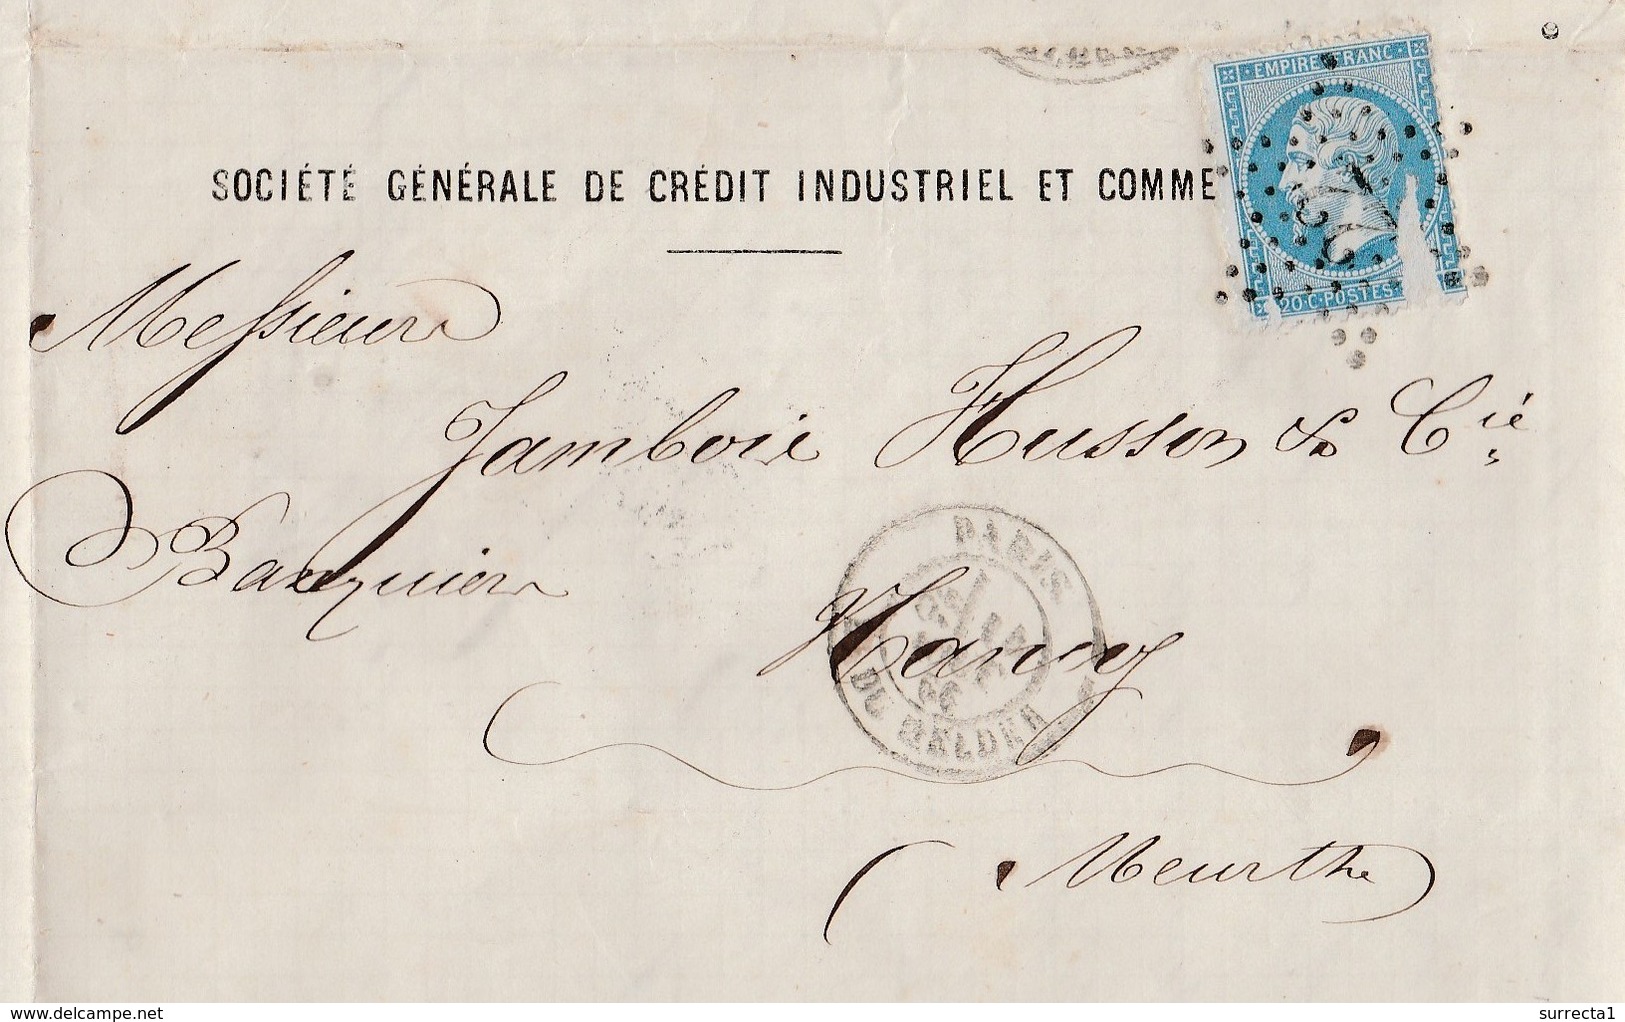 EMPIRE FRANC
20 C POSTES
22
SOCIÉTÉ GÉNÉRALE DE CRÉDIT INDUSTRIEL ET COMME
Messieurs
Jamboie Husson & Cie
Banquiers
PARIS
66
R. DU HELDER
Nancy
(Meurthe)
delcampe.net
surrecta1